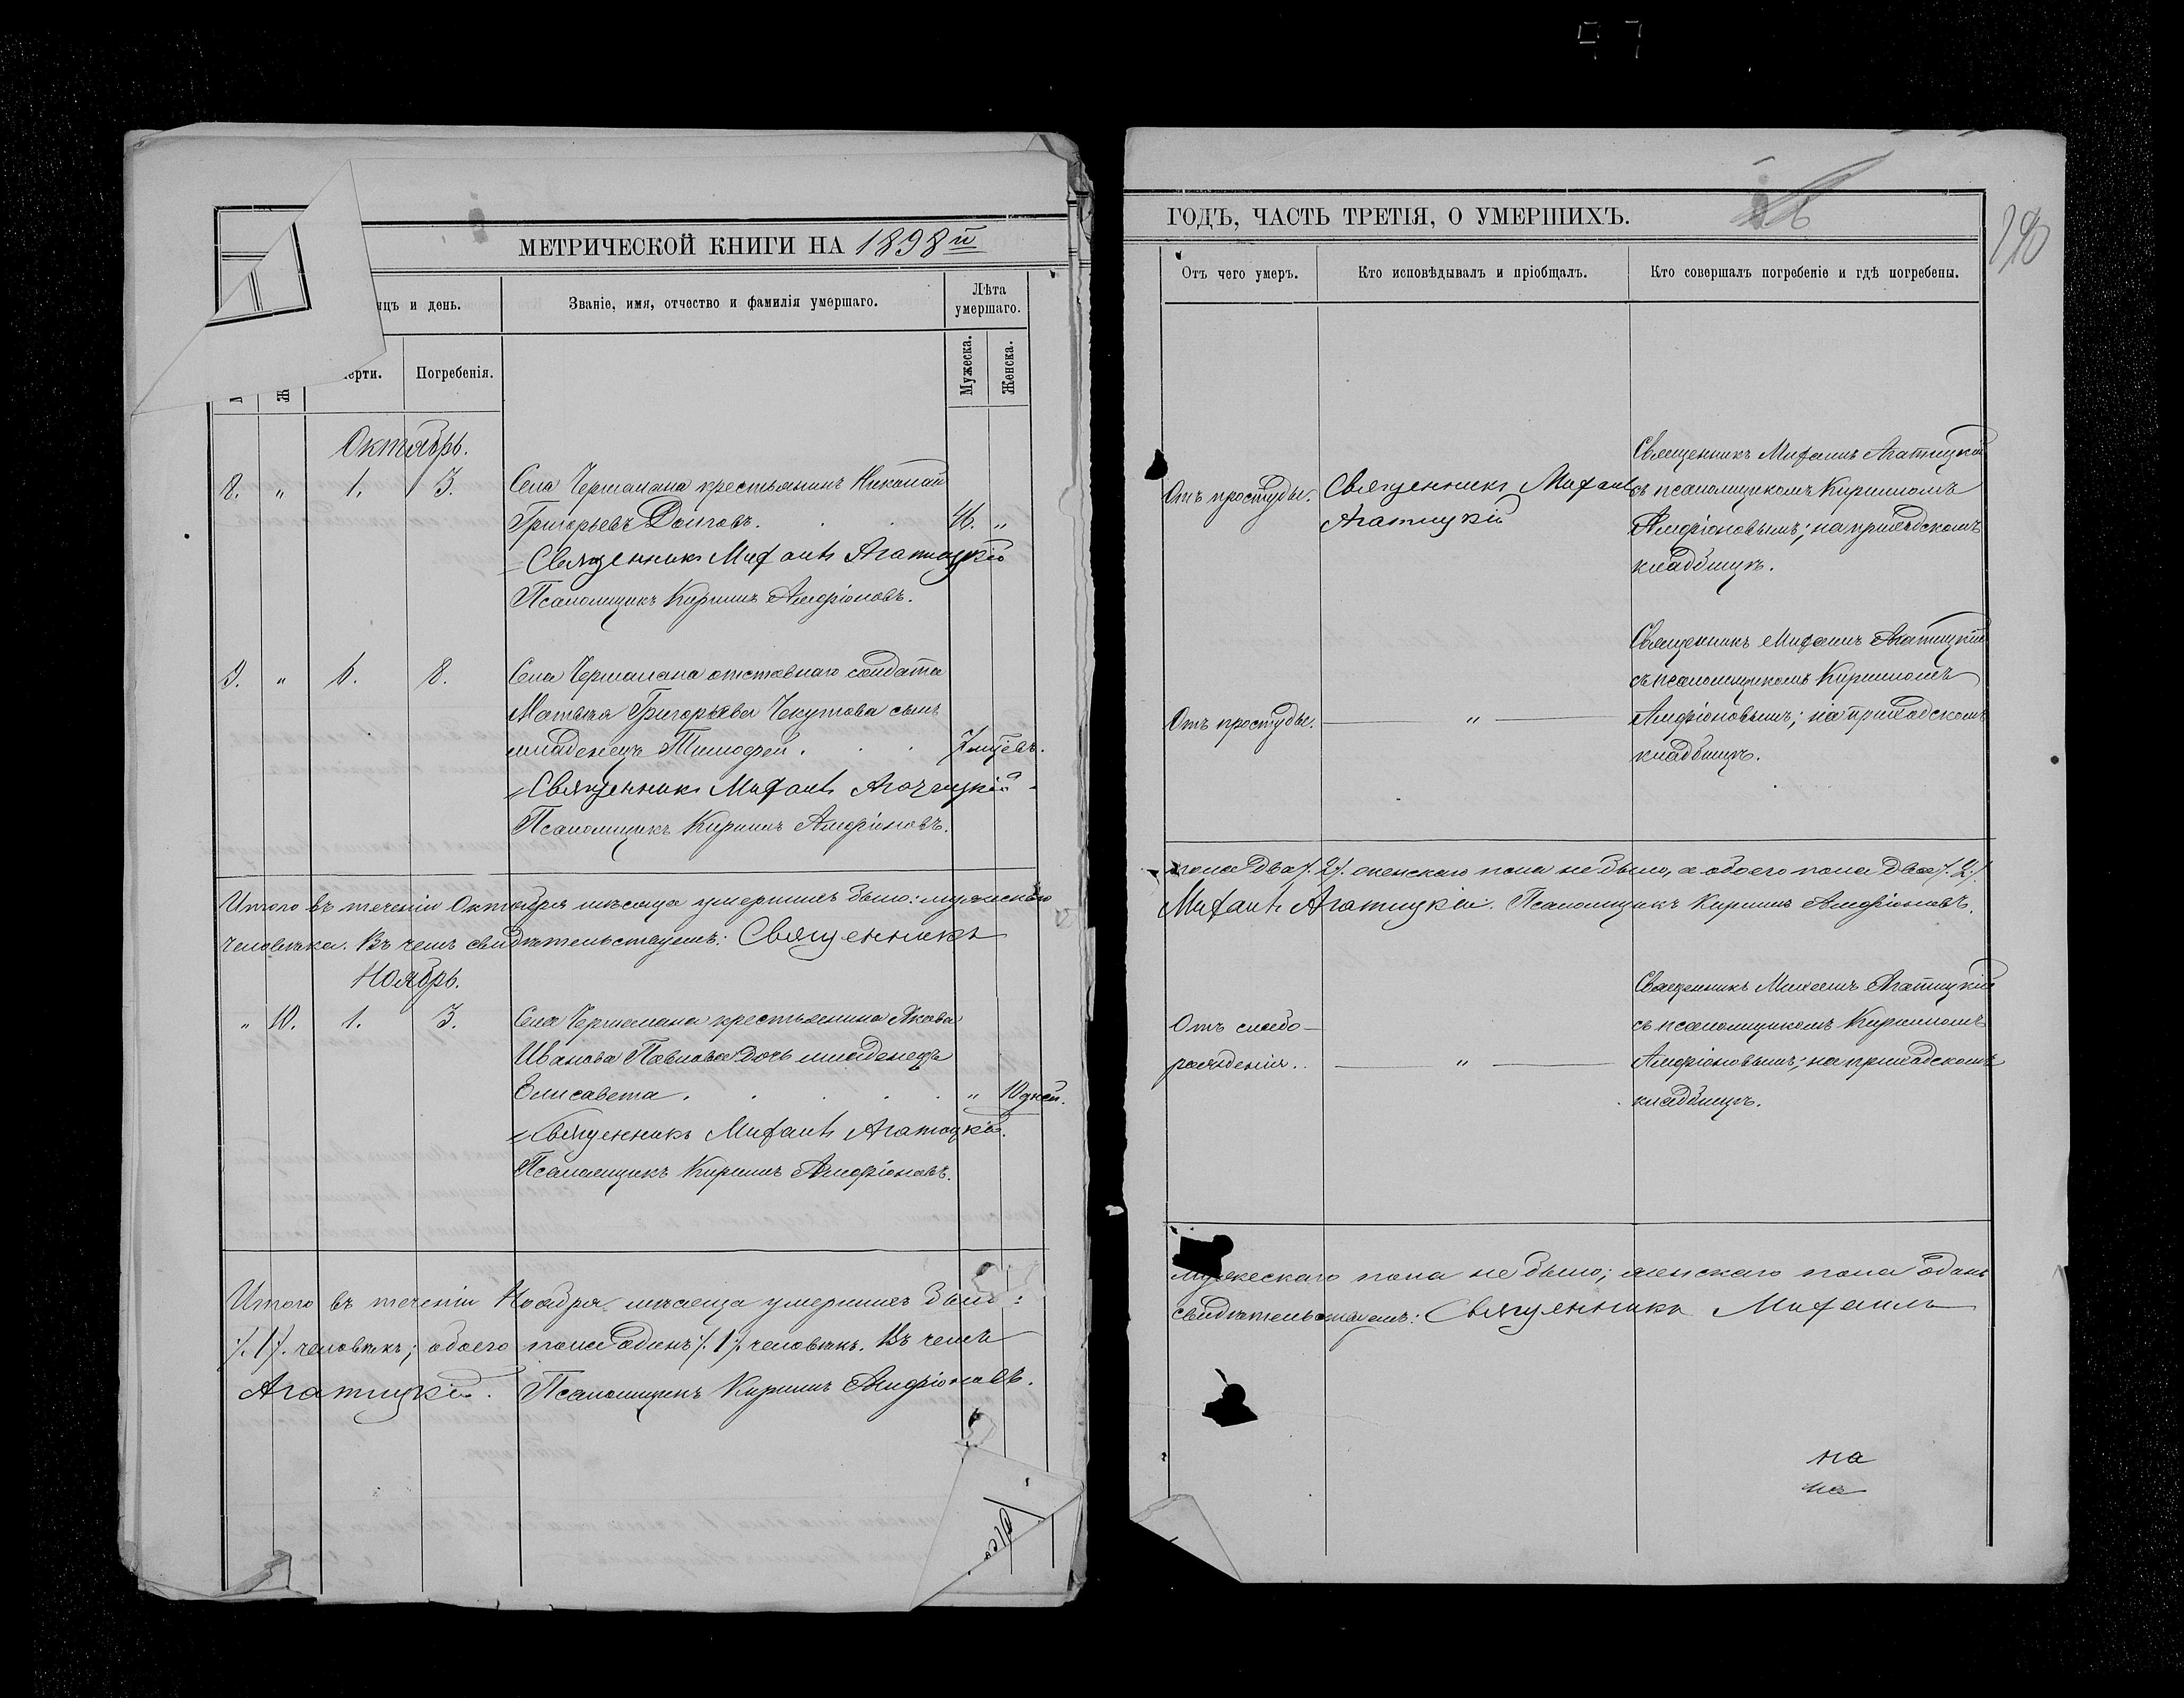 МЕТРИЧЕСКОЙ КНИГИ НА 1898й
яцъ и день.
Званіе, имя, отчество и фамилія умершаго.
Лѣта умершаго.
ерти.
Погребенія.
Мужеска.
Женска.
Октябрь.
8. " 1. 3. Села Чермалана крестьянинъ Николай
Григорьевъ Долговъ. 46. "
Священникъ Михаилъ Агатицкій
Псаломщикъ Кириллъ Амфіоновъ.
9. " 6. 8. Села Чермалана отставнаго солдата
Матвѣя Григорьева Чекутова сынъ
младенецъ Тимофей. 7 мцевъ.
Священникъ Михаилъ Агатицкій
Псаломщикъ Кириллъ Амфіоновъ.
Итого въ теченіи Октября мѣсяца умершихъ было: мужескаго
человѣка. Въ чемъ свидѣтельствуемъ: Священникъ
Ноябрь.
" 10. 1. 3. Села Чермалана крестьянина Якова
Иванова Павлова дочь младенецъ
Елисавета. " 10 дней.
Священникъ Михаилъ Агатицкій.
Псаломщикъ Кириллъ Амфіоновъ.
Итого въ теченіи Ноября мѣсяца умершихъ было:
/.1/. человѣкъ; обоего пола одинъ /.1/. человѣкъ. Въ чемъ
Агатицкій. Псаломщикъ Кириллъ Амфіоновъ.
ГОДЪ, ЧАСТЬ ТРЕТІЯ, О УМЕРШИХЪ.
190
Отъ чего умеръ.
Кто исповѣдывалъ и пріобщалъ.
Кто совершалъ погребеніе и гдѣ погребены.
Отъ простуды.
Священникъ Михаилъ
Агатицкій
Священникъ Михаилъ Агатицкій
съ псаломщикомъ Кирилломъ
Амфіоновымъ; на приходскомъ
кладбищѣ.
Отъ простуды.
"
Священникъ Михаилъ Агатицкій
съ псаломщикомъ Кирилломъ
Амфіоновымъ; на приходскомъ
кладбищѣ.
пола два /.2/. женскаго пола не было, а обоего пола два /.2/.
Михаилъ Агатицкій. Псаломщикъ Кириллъ Амфіоновъ.
Отъ слабо-
рожденія.
"
Священникъ Михаилъ Агатицкій
съ псаломщикомъ Кирилломъ
Амфіоновымъ; на приходскомъ
кладбищѣ.
мужескаго пола не было; женскаго пола одинъ
свидѣтельствуемъ: Священникъ Михаилъ
на
на